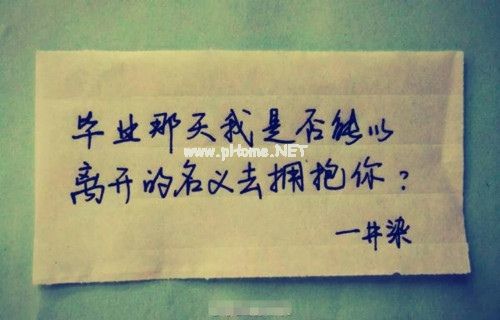 毕业那天我是否能以
www.pHome.NET
离开的名义去拥抱你？
一井染